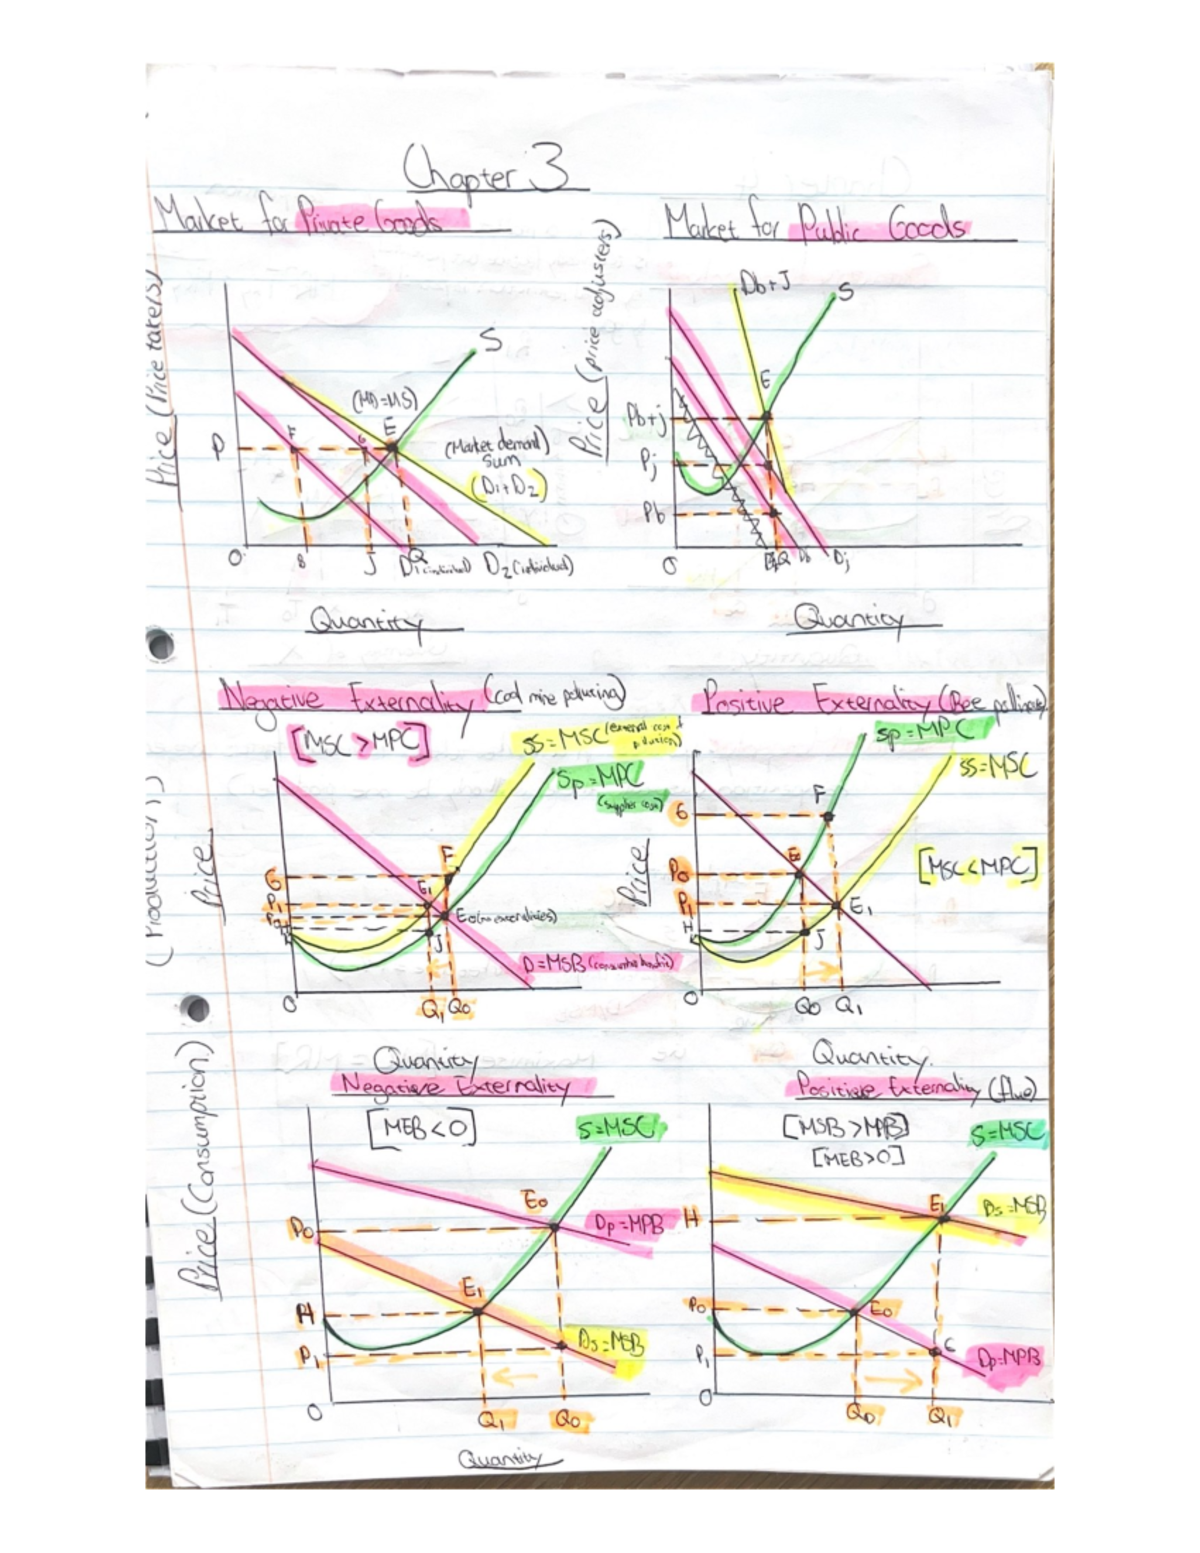 Chapter 3
Market for Private Goods
Market for Public Goods
Price (Price takers)
S
(MD=MS)
E
F
G
P
(Market demand)
sum
(D1+D2)
O
8
J
Q
D1 (individual)
D2 (individual)
Quantity
Price (price adjusters)
Db+J
S
E
Pb+j
Pj
Pb
O
Q
Db
Dj
Quantity
Negative Externality (coal mine polluting)
[MSC>MPC]
SS=MSC (external cost of pollution)
Sp=MPC
(supplier cost)
(Production)
Price
F
G
P1
P0
H
E1
E0 (no externalities)
J
D=MSB (consumer benefit)
O
Q1
Q0
Quantity
Positive Externality (Bee pollinate)
Sp=MPC
SS=MSC
Price
F
G
E
P0
P1
E1
H
J
[MSC<MPC]
O
Q0
Q1
Quantity.
Negative Externality
[MEB<0]
S=MSC
Price (Consumption)
E0
P0
Dp=MPB
E1
H
P1
Ds=MSB
O
Q1
Q0
Quantity
Positive Externality (flue)
[MSB>MPB]
[MEB>0]
S=MSC
E1
Ds=MSB
H
P0
E0
P1
C
Dp=MPB
O
Q0
Q1